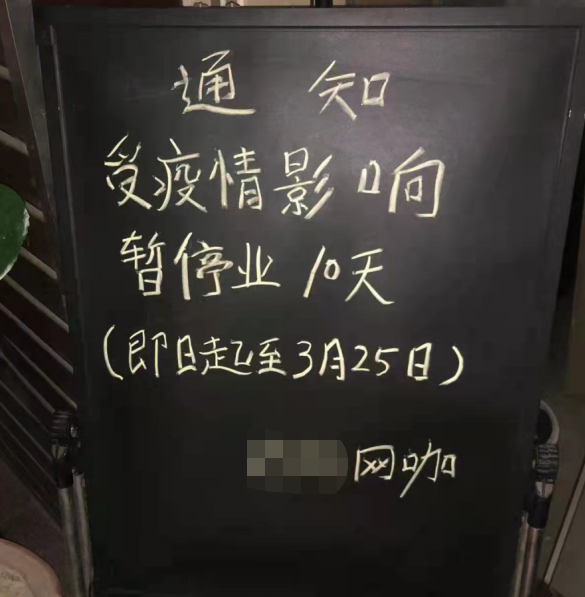 通知
受疫情影响
暂停业10天
(即日起至3月25日)
网咖